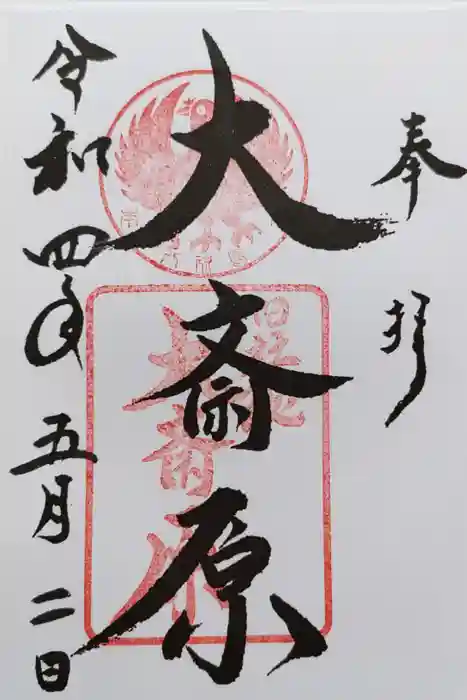 奉拝
大斎原
令和四年五月二日